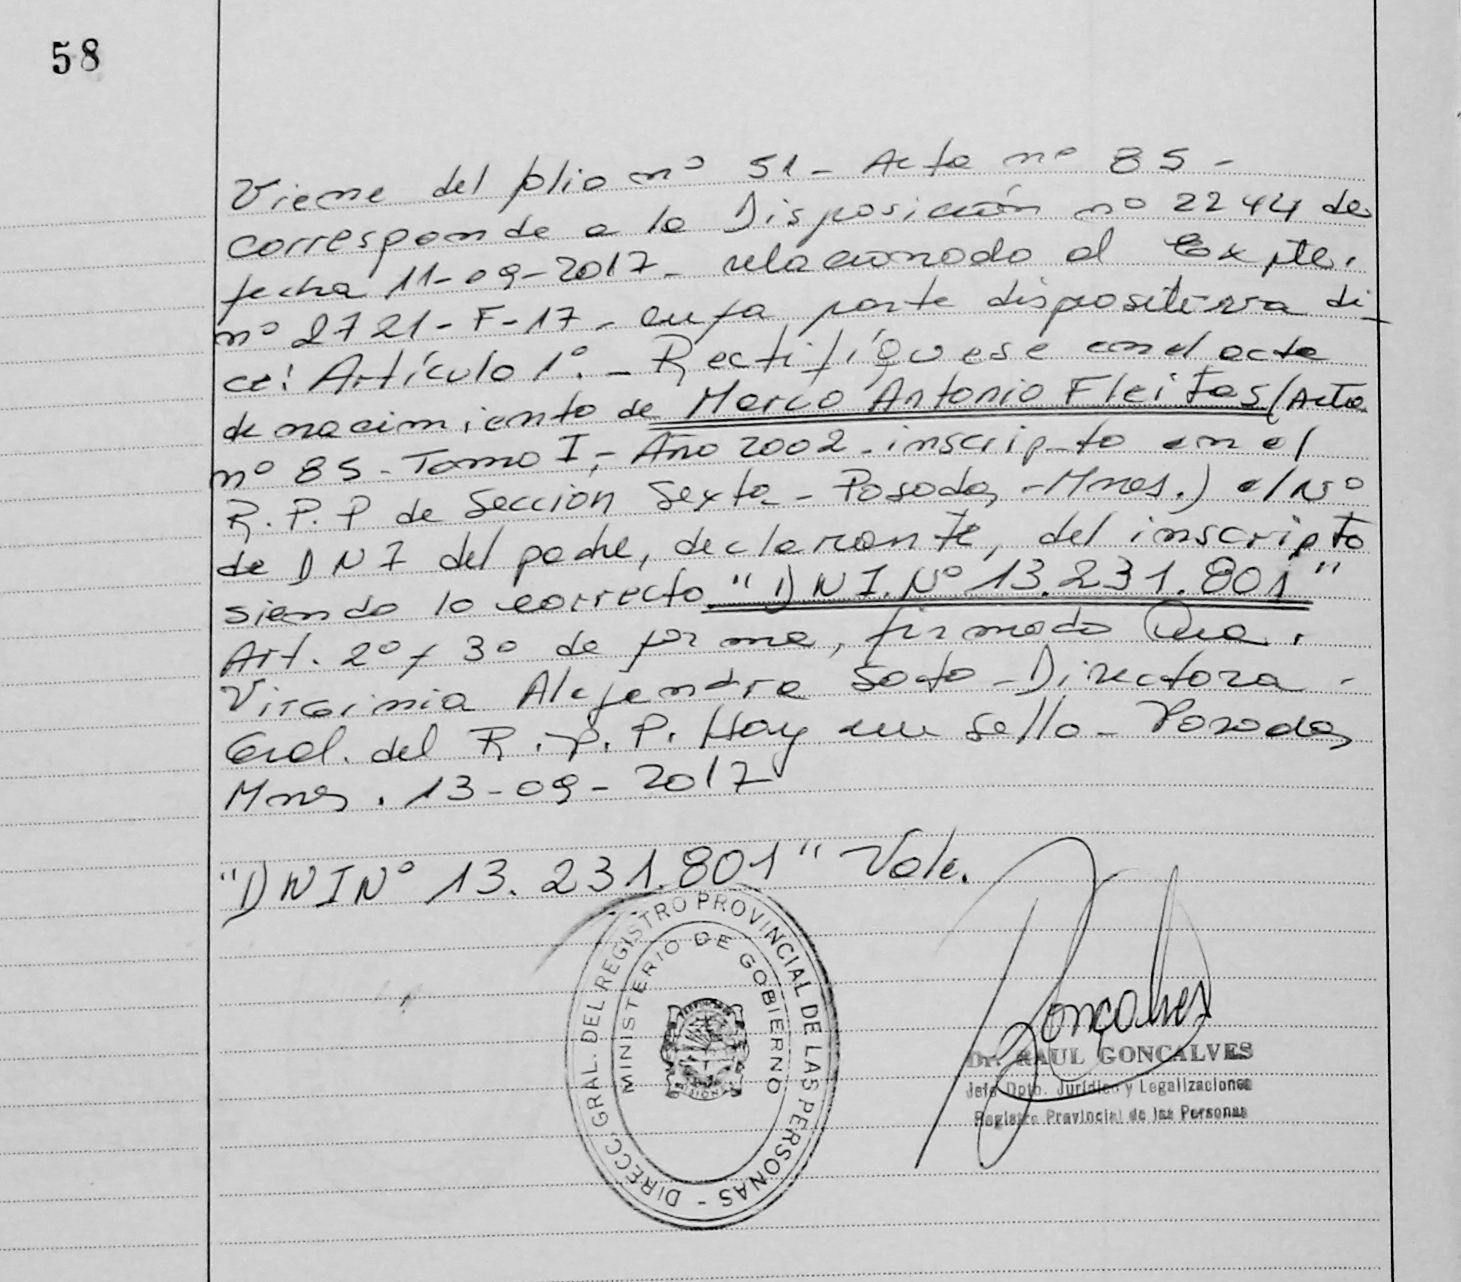 58
Viene del folio nº 51 - Acta nº 85 -
corresponde a la Disposición nº 2244 de
fecha 11-09-2017 - relacionado al Expte.
nº 2721-F-17 - cuya parte dispositiva di-
ce: Artículo 1º. - Rectifíquese en el acta
de nacimiento de Marco Antonio Fleitas (Acta
nº 85 - Tomo I, - Año 2002 - inscripto en el
R.P.P de Sección Sexta - Posadas - Mnes.) el Nº
de DNI del padre, declarante, del inscripto
siendo lo correcto "DNI. Nº 13.231.801"
Art. 2º y 3º de forma, firmado Dra.
Virginia Alejandra Soto - Directora -
Gral. del R.P.P. Hay un sello - Posadas,
Mnes. 13-09-2017
"DNI Nº 13.231.801" Vale.
DIRECC. GRAL. DEL REGISTRO PROVINCIAL DE LAS PERSONAS -
MINISTERIO DE GOBIERNO
MISIONES
Goncalves
Dr. RAUL GONCALVES
Jefe Dpto. Jurídico y Legalizaciones
Registro Provincial de las Personas